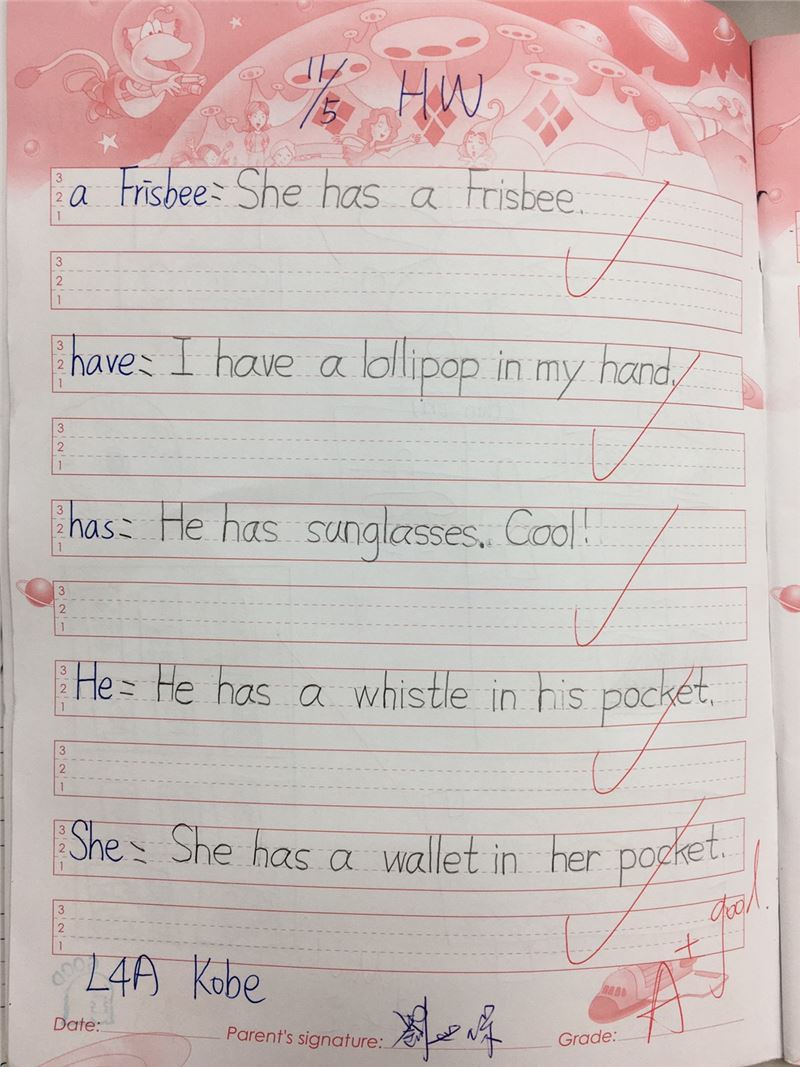 11/5 HW
3 2 1 a Frisbee = She has a Frisbee.
3 2 1
3 2 1 have = I have a lollipop in my hand.
3 2 1
3 2 1 has = He has sunglasses. Cool!
3 2 1
3 2 1 He = He has a whistle in his pocket.
3 2 1
3 2 1 She = She has a wallet in her pocket.
3 2 1
good.
L4A Kobe
A+
Date: Parent's signature: Grade: